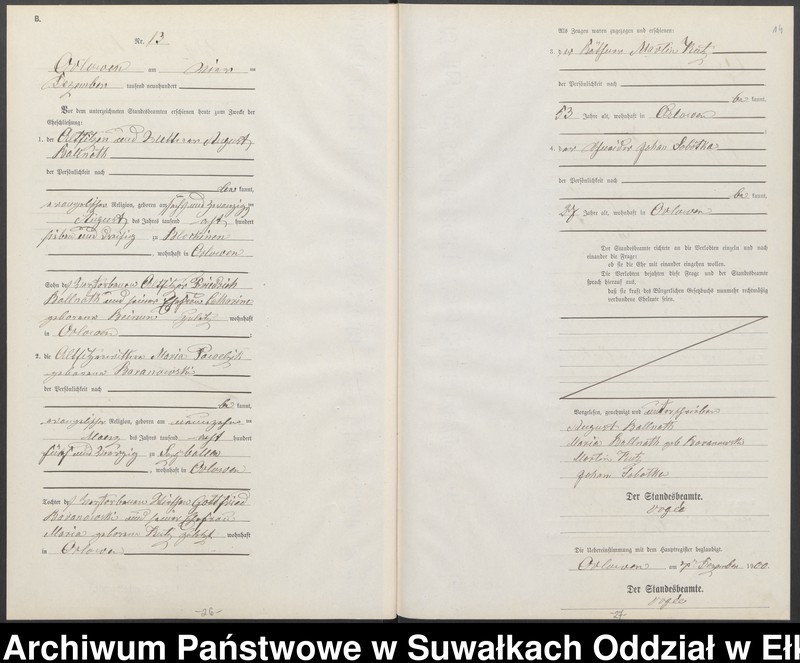 B.
Nr. 13
Orlowen am vier
Dezember tausend neunhundert
Vor dem unterzeichneten Standesbeamten erschienen heute zum Zwecke der
Eheschließung:
1. der Altsitzer und Wittwer August
Ballnath
der Persönlichkeit nach
be kannt,
evangelischer Religion, geboren am sechs und zwanzig
August des Jahres tausend acht hundert
sieben und dreißig zu
, wohnhaft in Orlowen
Sohn des verstorbenen Altsitzer Friedrich
Ballnath und seiner Ehefrau Catharine
geborene zuletzt wohnhaft
in Orlowen
2. die Altsitzerwittwe Maria
geborene Baranowski
der Persönlichkeit nach
be kannt,
evangelischer Religion, geboren am neunzehn
März des Jahres tausend acht hundert
fünf und vierzig zu
, wohnhaft in Orlowen
Tochter des verstorbenen Gottfried
Baranowski und seiner Ehefrau
Maria geborene zuletzt wohnhaft
in Orlowen
-26-
Als Zeugen waren zugezogen und erschienen:
3. der Käthner Martin
der Persönlichkeit nach
be kannt,
53 Jahre alt, wohnhaft in Orlowen
4. der Schneider Johann Sobottka
der Persönlichkeit nach
be kannt,
37 Jahre alt, wohnhaft in Orlowen
Der Standesbeamte richtete an die Verlobten einzeln und nach
einander die Frage:
ob sie die Ehe mit einander eingehen wollen.
Die Verlobten bejahten diese Frage und der Standesbeamte
sprach hierauf aus,
daß sie kraft des Bürgerlichen Gesetzbuchs nunmehr rechtmäßig
verbundene Eheleute seien.
Vorgelesen, genehmigt und unterschrieben
August Ballnath
Maria Ballnath geb. Baranowski
Martin
Johann Sobottka
Der Standesbeamte.
Die Uebereinstimmung mit dem Hauptregister beglaubigt.
Orlowen am Dezember 1900.
Der Standesbeamte.
Archiwum Państwowe w Suwałkach Oddział w Ełk